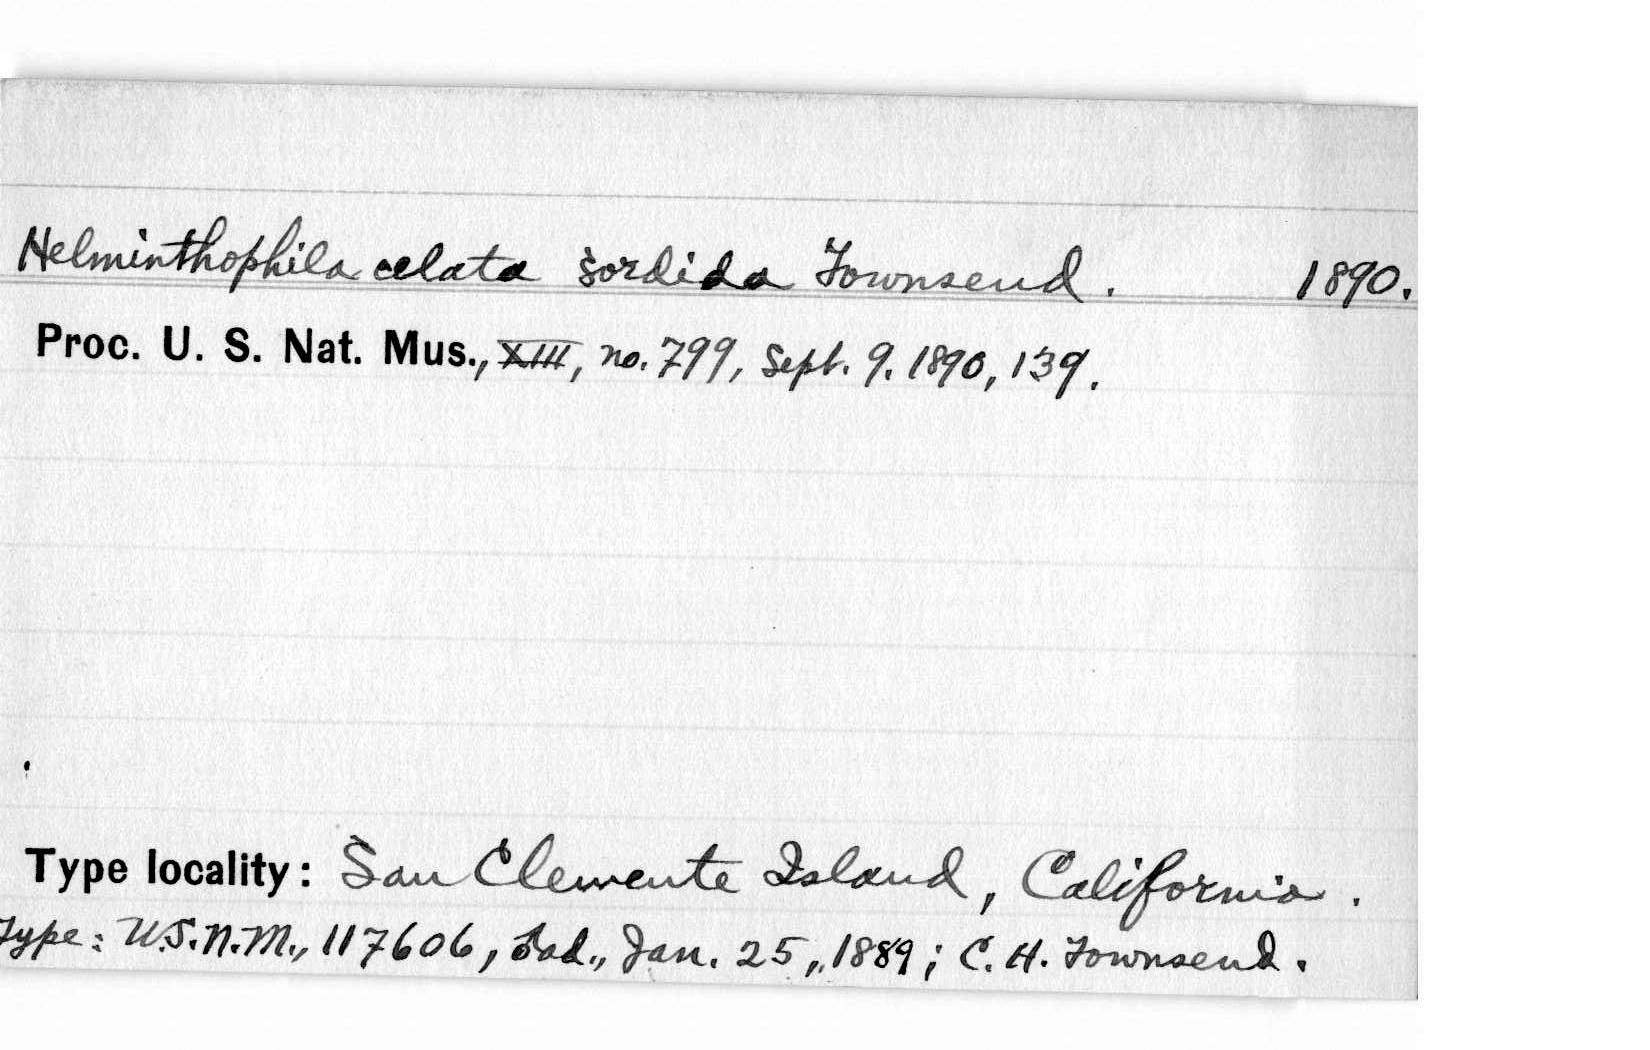 Helminthophila celata sordida Townsend. 1890.
Proc. U. S. Nat. Mus., XIII, no. 799, Sept. 9. 1890, 139.
Type locality: San Clemente Island, California.
Type: U.S.N.M., 117606, ad., Jan. 25, 1889; C. H. Townsend.